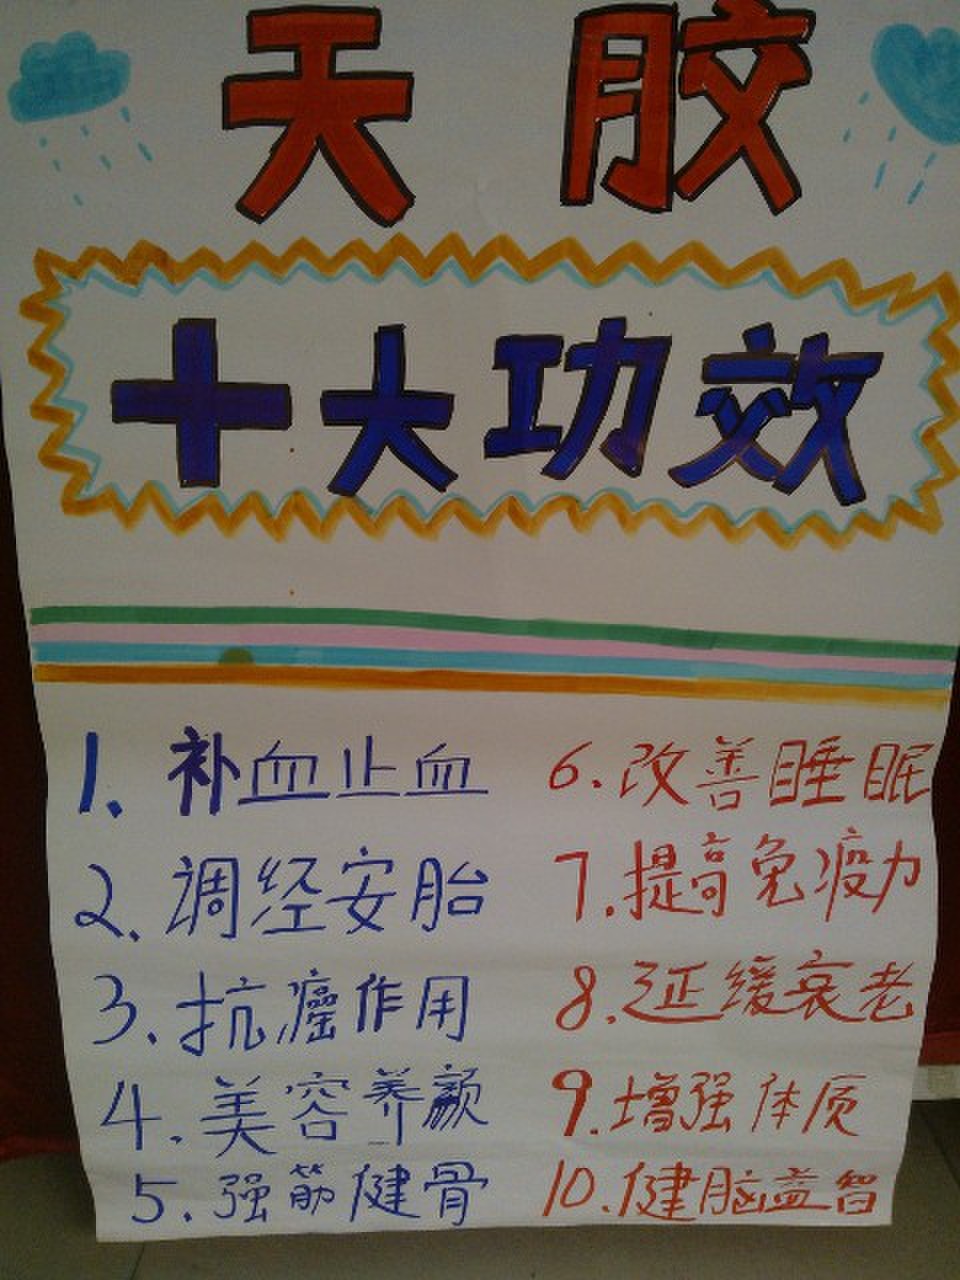 天胶
十大功效
1. 补血止血
2. 调经安胎
3. 抗癌作用
4. 美容养颜
5. 强筋健骨
6. 改善睡眠
7. 提高免疫力
8. 延缓衰老
9. 增强体质
10. 健脑益智